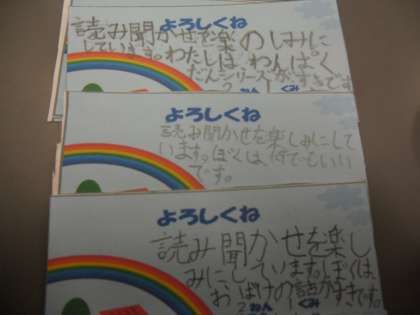 読み聞かせを楽のしみに
しています。わたしは、わんぱく
だんシリーズがすきです
2ねん くみ
よろしくね
読み聞かせを楽しみにして
います。ぼくは、何でもいい
です。
よろしくね
読み聞かせを楽し
みにしています。ぼくは、
おばけの話がすきです。
2ねん 1くみ